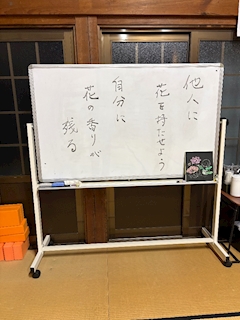 他人に
花を持たせよう
自分に
花の香りが
残る